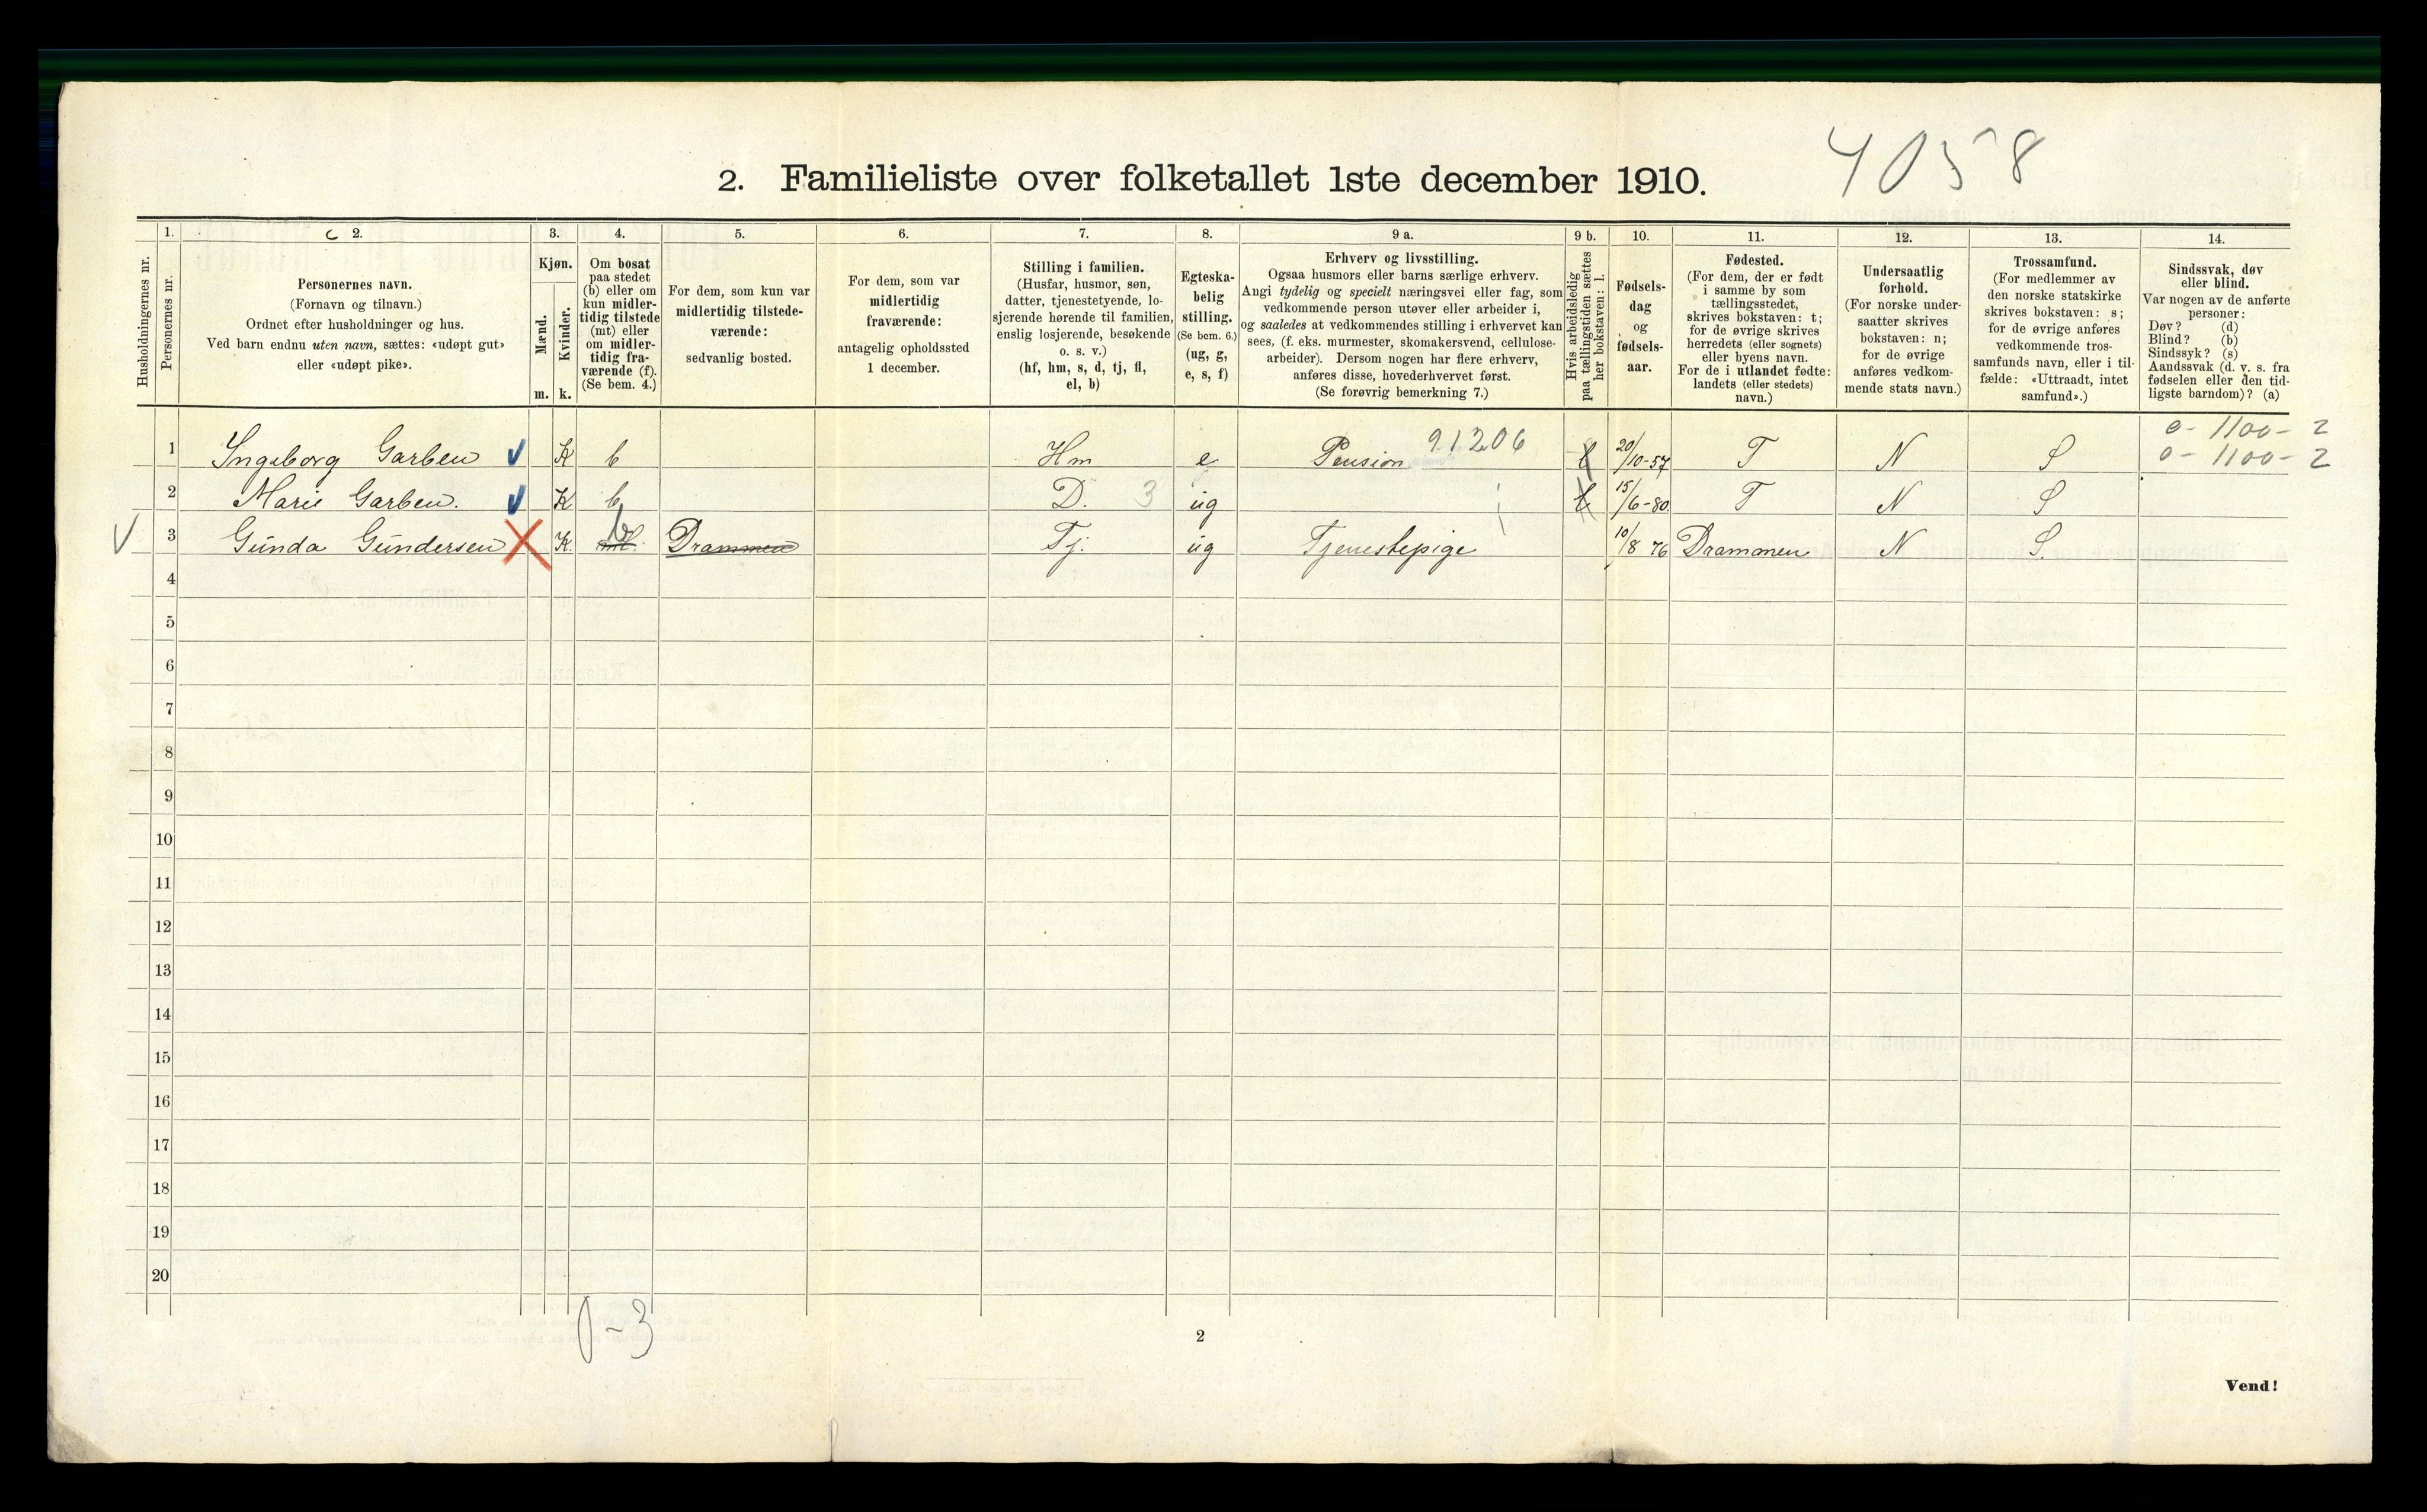 4058
2. Familieliste over folketallet 1ste december 1910.
Husholdningernes nr.
1.
Personernes nr.
2.
Personernes navn.
(Fornavn og tilnavn.)
Ordnet efter husholdninger og hus.
Ved barn endnu uten navn, sættes: «udøpt gut»
eller «udøpt pike».
3.
Kjøn.
Mænd.
Kvinder.
m. k.
4.
Om bosat
paa stedet
(b) eller om
kun midler-
tidig tilstede
(mt) eller
om midler-
tidig fra-
værende (f).
(Se bem. 4.)
5.
For dem, som kun var
midlertidig tilstede-
værende:
sedvanlig bosted.
6.
For dem, som var
midlertidig
fraværende:
antagelig opholdssted
1 december.
7.
Stilling i familien.
(Husfar, husmor, søn,
datter, tjenestetyende, lo-
sjerende hørende til familien,
enslig losjerende, besøkende
o. s. v.)
(hf, hm, s, d, tj, fl,
el, b)
8.
Egteska-
belig
stilling.
(Se bem. 6.)
(ug, g,
e, s, f)
9 a.
Erhverv og livsstilling.
Ogsaa husmors eller barns særlige erhverv.
Angi tydelig og specielt næringsvei eller fag, som
vedkommende person utøver eller arbeider i,
og saaledes at vedkommendes stilling i erhvervet kan
sees, (f. eks. murmester, skomakersvend, cellulose-
arbeider). Dersom nogen har flere erhverv,
anføres disse, hovederhvervet først.
(Se forøvrig bemerkning 7.)
9 b.
Hvis arbeidsledig
paa tællingstiden sættes
her bokstaven: l.
10.
Fødsels-
dag
og
fødsels-
aar.
11.
Fødested.
(For dem, der er født
i samme by som
tællingsstedet,
skrives bokstaven: t;
for de øvrige skrives
herredets (eller sognets)
eller byens navn.
For de i utlandet fødte:
landets (eller stedets)
navn.)
12.
Undersaatlig
forhold.
(For norske under-
saatter skrives
bokstaven: n;
for de øvrige
anføres vedkom-
mende stats navn.)
13.
Trossamfund.
(For medlemmer av
den norske statskirke
skrives bokstaven: s;
for de øvrige anføres
vedkommende tros-
samfunds navn, eller i til-
fælde: «Uttraadt, intet
samfund».)
14.
Sindssvak, døv
eller blind.
Var nogen av de anførte
personer:
Døv? (d)
Blind? (b)
Sindssyk? (s)
Aandssvak (d. v. s. fra
fødselen eller den tid-
ligste barndom)? (a)
0 - 1100 - 2
1 Ingeborg Garben K b Hm e Pension 91206 20/10-57 T N S 0 - 1100 - 2
2 Marie Garben. K b D. 3 ug 15/6-80 T N S
3 Gunda Gundersen K. mt. b Drammen Tj. ug Tjenestepige 10/8 76 Drammen N S.
4
5
6
7
8
9
10
11
12
13
14
15
16
17
18
19
20
0-3
2
Vend!